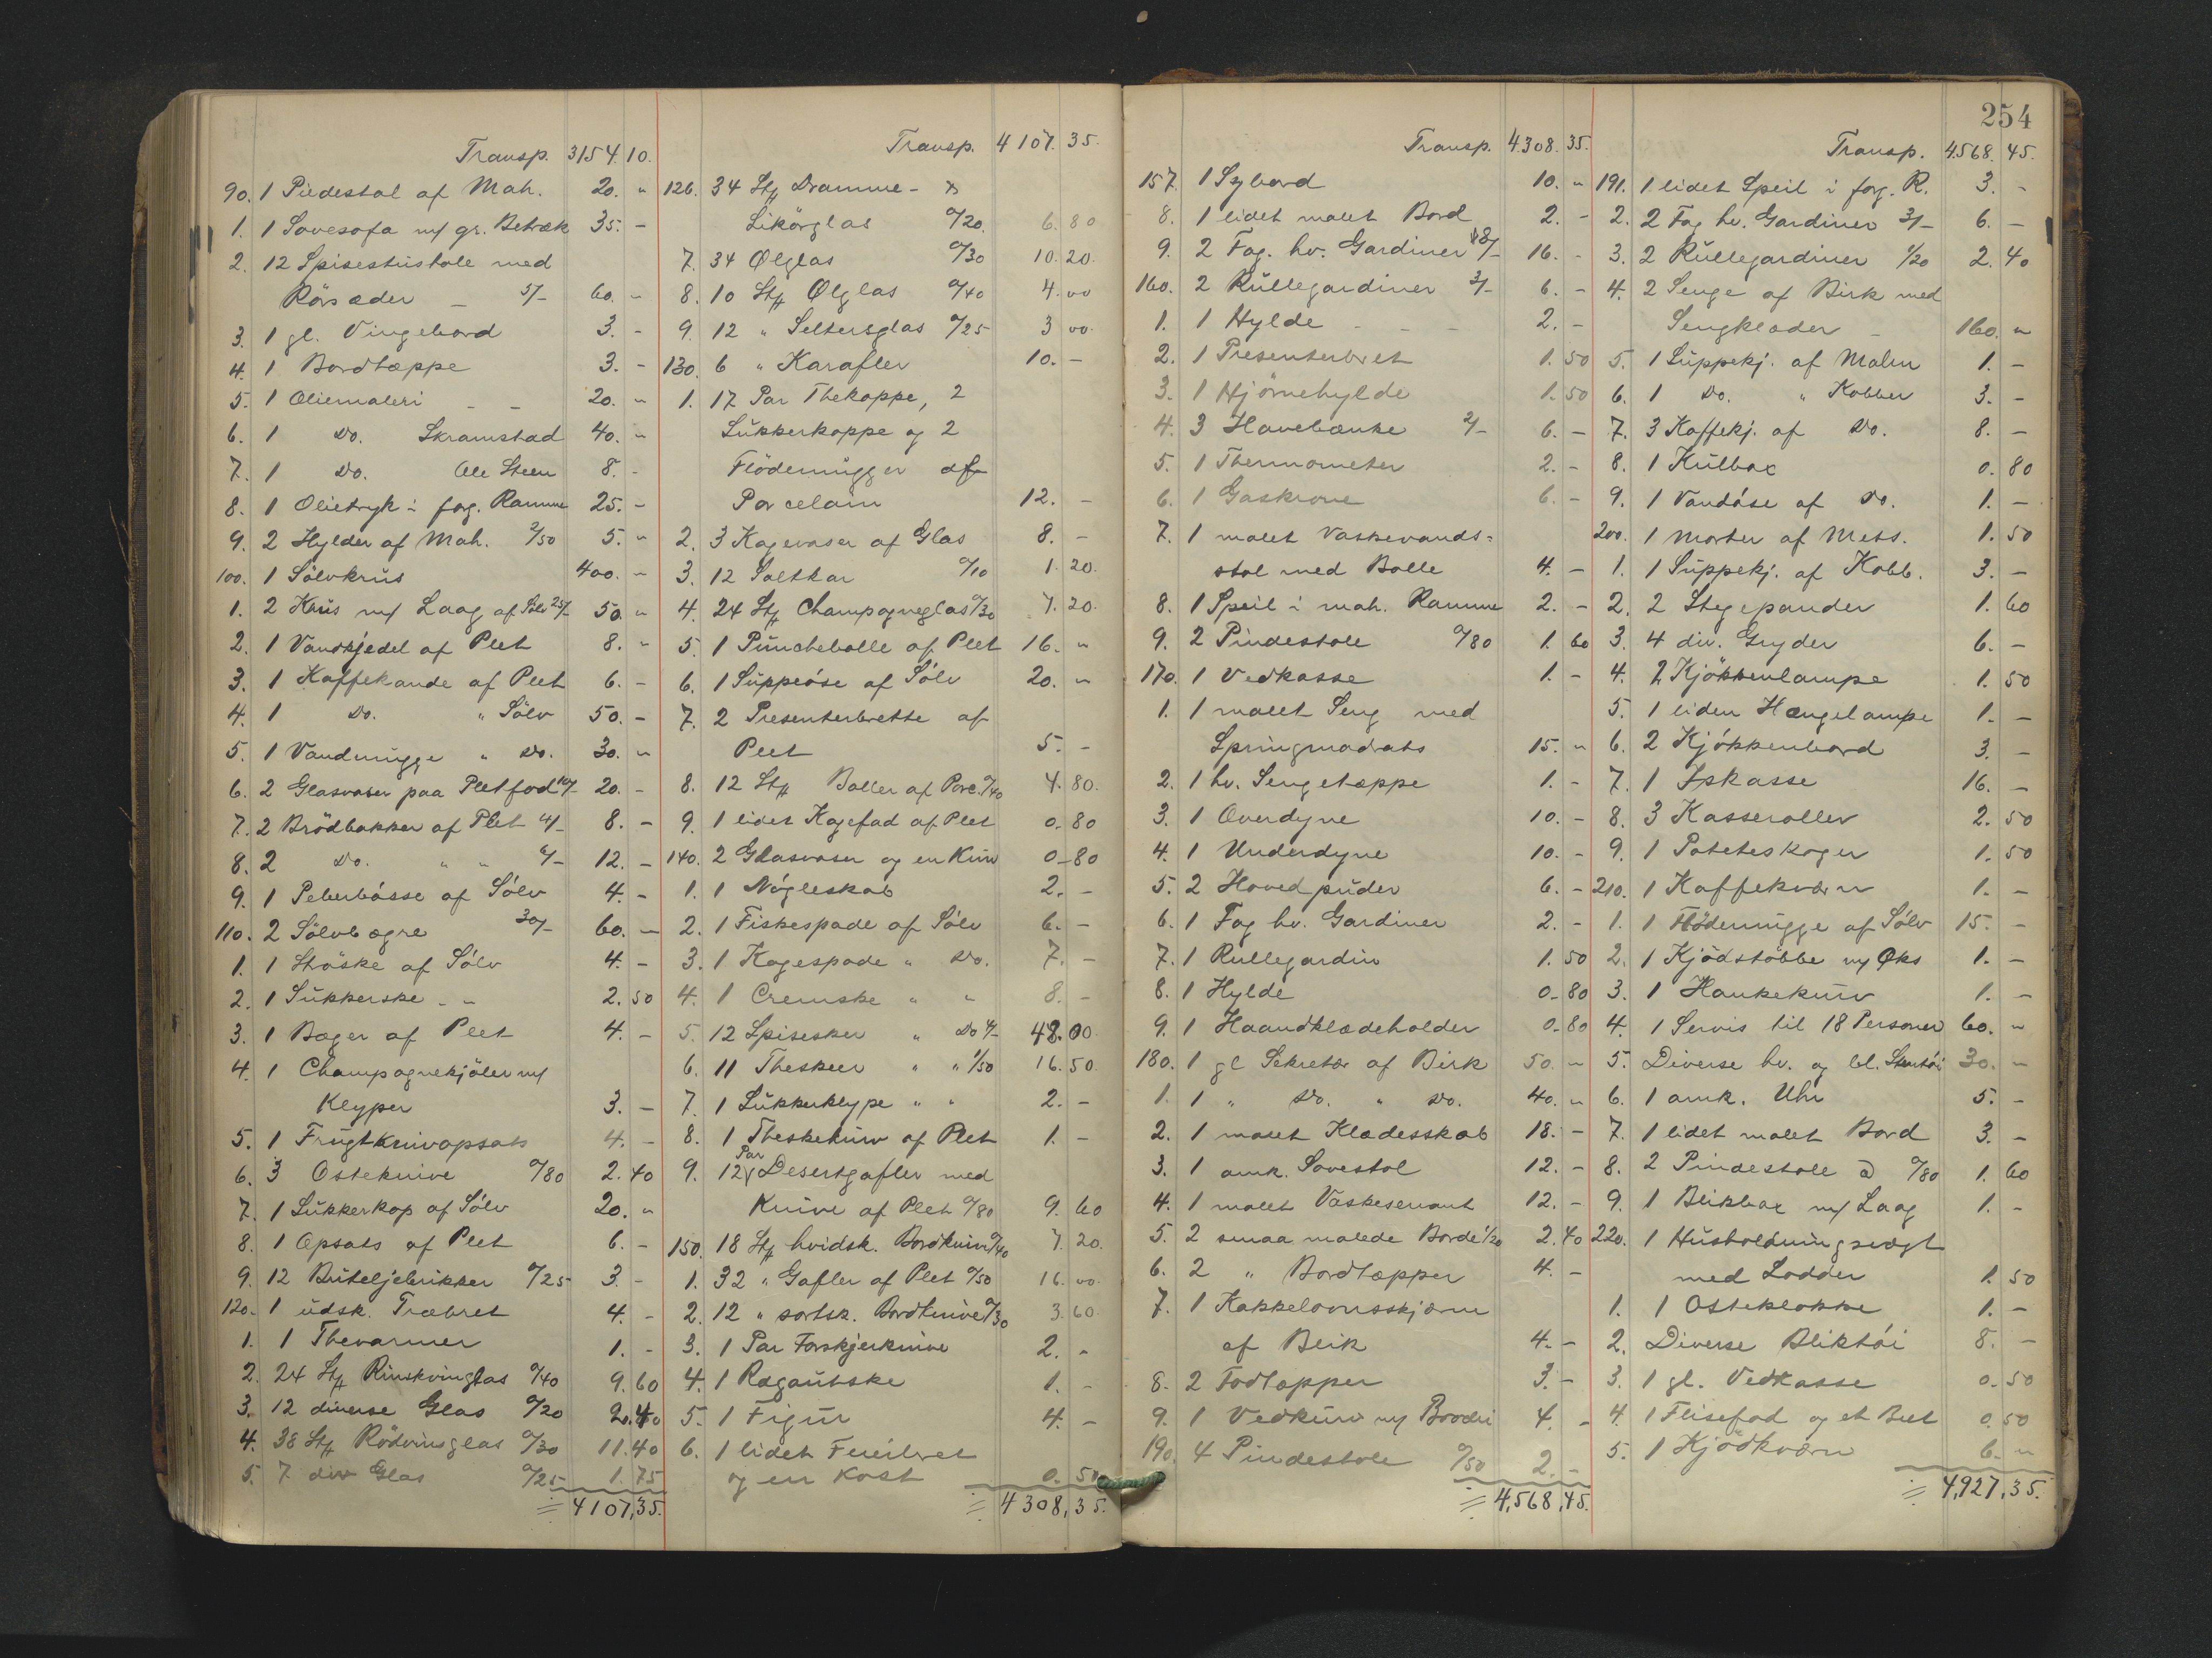 Transp. 3154.10.
90. 1 Piedestal af Mah. 20. "
1. 1 Sovesofa m/ gr. Betræk 35. -
2. 12 Spisestuestole med
Rörsæder - 5/- 60. -
3. 1 gl. Vingebord 3. -
4. 1 Bordtæppe 3. -
5. 1 Oliemaleri - - 20. "
6. 1 Do. Skramstad 40. "
7. 1 Do. Ole Steen 8. -
8. 1 Olietryk i forg. Ramme 25. -
9. 2 Hylder af Mah. 2/50 5. "
100. 1 Sölvkrus 400. -
1. 2 Krus m/ Laag af Sölv 25/- 50. "
2. 1 Vandkjedel af Plet 8. "
3. 1 Kaffekande af Plet 6. -
4. 1 Do. " Sölv 50. -
5. 1 Vandmugge " Do. 30. "
6. 2 Glasvaser paa Pletfod 10/- 20. -
7. 2 Brödbakker af Plet 4/- 8. -
8. 2 Do. " " 6/- 12. -
9. 1 Peberbösse af Sölv 4. -
110. 2 Sölvbægre 30/- 60. -
1. 1 Ströske af Sölv 4. -
2. 1 Sukkerske - " 2.50
3. 1 Bæger af Plet 4. -
4. 1 Champagnekjöler m/
Klyper 3. -
5. 1 Frugtknivopsats 4. -
6. 3 Osteknive 0/80 2.40
7. 1 Sukkerkop af Sölv 20. "
8. 1 Opsats af Plet 6. -
9. 12 Buteljebrikker 0/25 3. -
120. 1 udsk. Træbret 4. -
1. 1 Thevarmer 1. -
2. 24 Stk Rinskvinglas 0/40 9.60
3. 12 diverse Glas 0/20 2.40
4. 38 Stk Rödvinsglas 0/30 11.40
5. 7 div Glas 0/25 1.75
= 4107,35.
Transp. 4107.35.
126. 34 Stk Dramme- &
Likörglas 0/20. 6.80
7. 34 Ølglas 0/30 10.20.
8. 10 Stk Ølglas 0/40 4.00
9. 12 " Seltersglas 0/25 3 00.
130. 6 " Karafler 10. -
1. 17 Par Thekoppe, 2
Sukkerkoppe og 2
Flödemugger af
Porcelain 12. -
2. 3 Kagevaser af Glas 8. -
3. 12 Saltkar 0/10 1.20.
4. 24 Stk Champagneglas 0/30 7.20.
5. 1 Punchebolle af Plet 16. "
6. 1 Suppeöse af Sölv 20. "
7. 2 Presenterbrette af
Plet 5. -
8. 12 Stk Boller af Porc. 0/40 4.80.
9. 1 lidet Kagefad af Plet 0.80
140. 2 Glasvaser og en Kurv 0-80
1. 1 Nögleskab 2. -
2. 1 Fiskespade af Sölv 6. -
3. 1 Kagespade " Do. 7. -
4. 1 Cremske " " 8. -
5. 12 Spiseskeer " Do 4/- 48.00.
6. 11 Theskeer " " 1/50 16.50.
7. 1 Sukkerklype " " 2. -
8. 1 Theskekurv af Plet 1. -
9. 12 Par Desertgafler med
Knive af Plet 0/80 9.60
150. 18 Stk hvidsk. Bordknive 0/40 7.20.
1. 32 " Gafler af Plet 0/50 16.00.
2. 12 " sortsk. Bordknive 0/30 3.60.
3. 1 Par Forskjerknive 2. -
4. 1 Ragoutske 1. -
5. 1 Figur 4. -
6. 1 lidet
og en Kost 0.50
= 4308,35.
Transp. 4308.35.
157. 1 Sybord 10. "
8. 1 lidet malet Bord 2. -
9. 2 Fag. hv. Gardiner 8/- 16. -
160. 2 Rullegardiner 3/- 6. -
1. 1 Hylde - - - 2. -
2. 1 Presenterbret 1.50
3. 1 Hjörnehylde 1.50
4. 3 Havebænke 2/- 6. -
5. 1 Thermometer 2. -
6. 1 Gaskrone 6. -
7. 1 malet Vaskevands=
stol med Bolle 4. -
8. 1 Speil i mah. Ramme 2. -
9. 2 Pindestole 0/80 1.60
170. 1 Vedkasse 1. -
1. 1 malet Seng med
Springmadrats 15. "
2. 1 hv. Sengetæppe 1. -
3. 1 Overdyne 10. -
4. 1 Underdyne 10. -
5. 2 Hovedpuder 6. -
6. 1 Fag hv. Gardiner 2. -
7. 1 Rullegardin 1.50
8. 1 Hylde 0-80
9. 1 Haandklædeholder 0-80
180. 1 gl Sekretær af Birk 50. "
1. 1 " Do. " Do. 40. "
2. 1 malet Klædesskab 18. -
3. 1 amk. Sovestol 12. -
4. 1 malet Vaskeservant 12. -
5. 2 smaa malede Borde 1/20 2.40
6. 2 " Bordtæpper 4. -
7. 1 Kakkelovnsskjærm
af Blik 4. -
8. 2 Fodtæpper 3. -
9. 1 Vedkurv m/ Broderi 4. -
190. 4 Pindestole 0/50 2. -
= 4,568,45.
254
Transp. 4568.45.
191. 1 lidet Speil i forg. R. 3. -
2. 2 Fag hv. Gardiner 3/- 6. -
3. 2 Rullegardiner 1/20 2.40
4. 2 Senge af Birk med
Sengklæder - 160. "
5. 1 Suppekj. af Malm 1. -
6. 1 Do. " Kobber 3. -
7. 3 Kaffekj. af Do. 8. -
8. 1 Kulbox 0.80
9. 1 Vandöse af Do. 1. -
200. 1 Morter af Mess. 1.50
1. 1 Suppekj. af Kobb. 3. -
2. 2 Stegepander 1.60
3. 4 div. Gryder 6. -
4. 2 Kjökkenlampe 1.50
5. 1 liden Hængelampe 1. -
6. 2 Kjökkenbord 3. -
7. 1 Iskasse 16. -
8. 3 Kasseroller 2.50
9. 1 Poteteskoger 1.50
210. 1 Kaffekværn 1. -
1. 1 Flödemugge af Sölv 15. -
2. 1 Kjödstöbbe m/ Øks 1. -
3. 1 Hankekurv 1. -
4. 1 Servis til 18 Personer 60. "
5. Diverse hv. og bl. Stentöi 30. "
6. 1 amk. Uhr 5. -
7. 1 lidet malet Bord 3. -
8. 2 Pindestole à 0/80 1.60
9. 1 Blikbox m/ Laag 1. -
220. 1 Husholdningsvægt
med Lodder 1.50
1. 1 Osteklokke 1. -
2. Diverse Bliktöi 8. -
3. 1 gl. Vedkasse 0.50
4. 1 Flisefad og et Bret 0.50
5. 1 Kjödkværn 6. "
= 4,927,35.